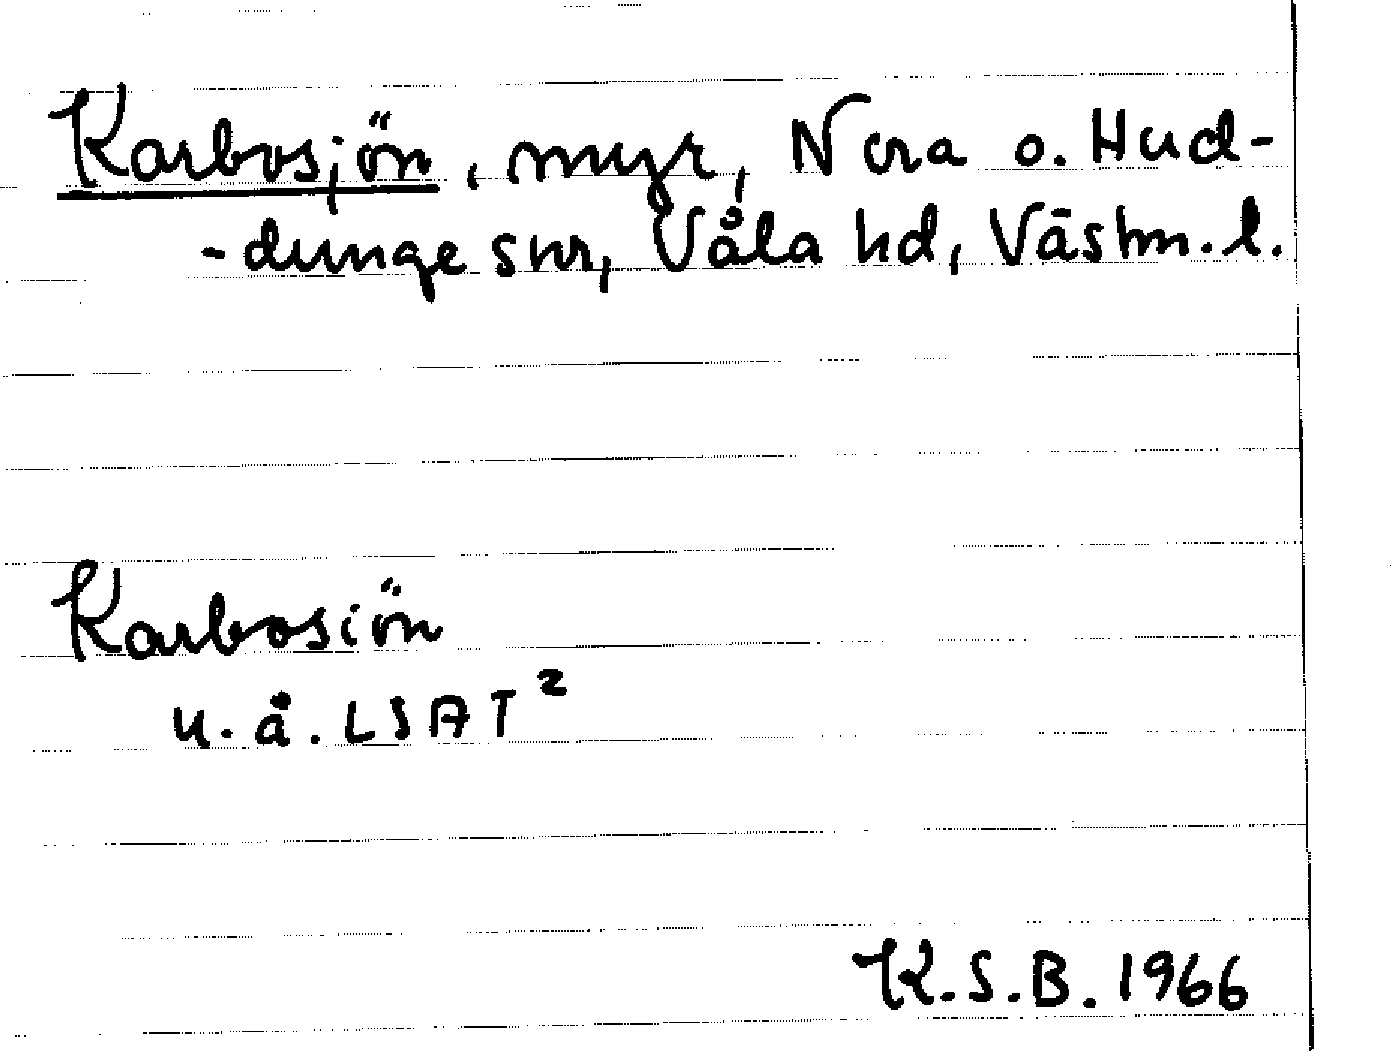 Karbosjön, myr, Nora o. Hud-
-dunge snr, Våla hd, Västm. l.
Karbosiön
u. å. LSAT²
K.S.B. 1966